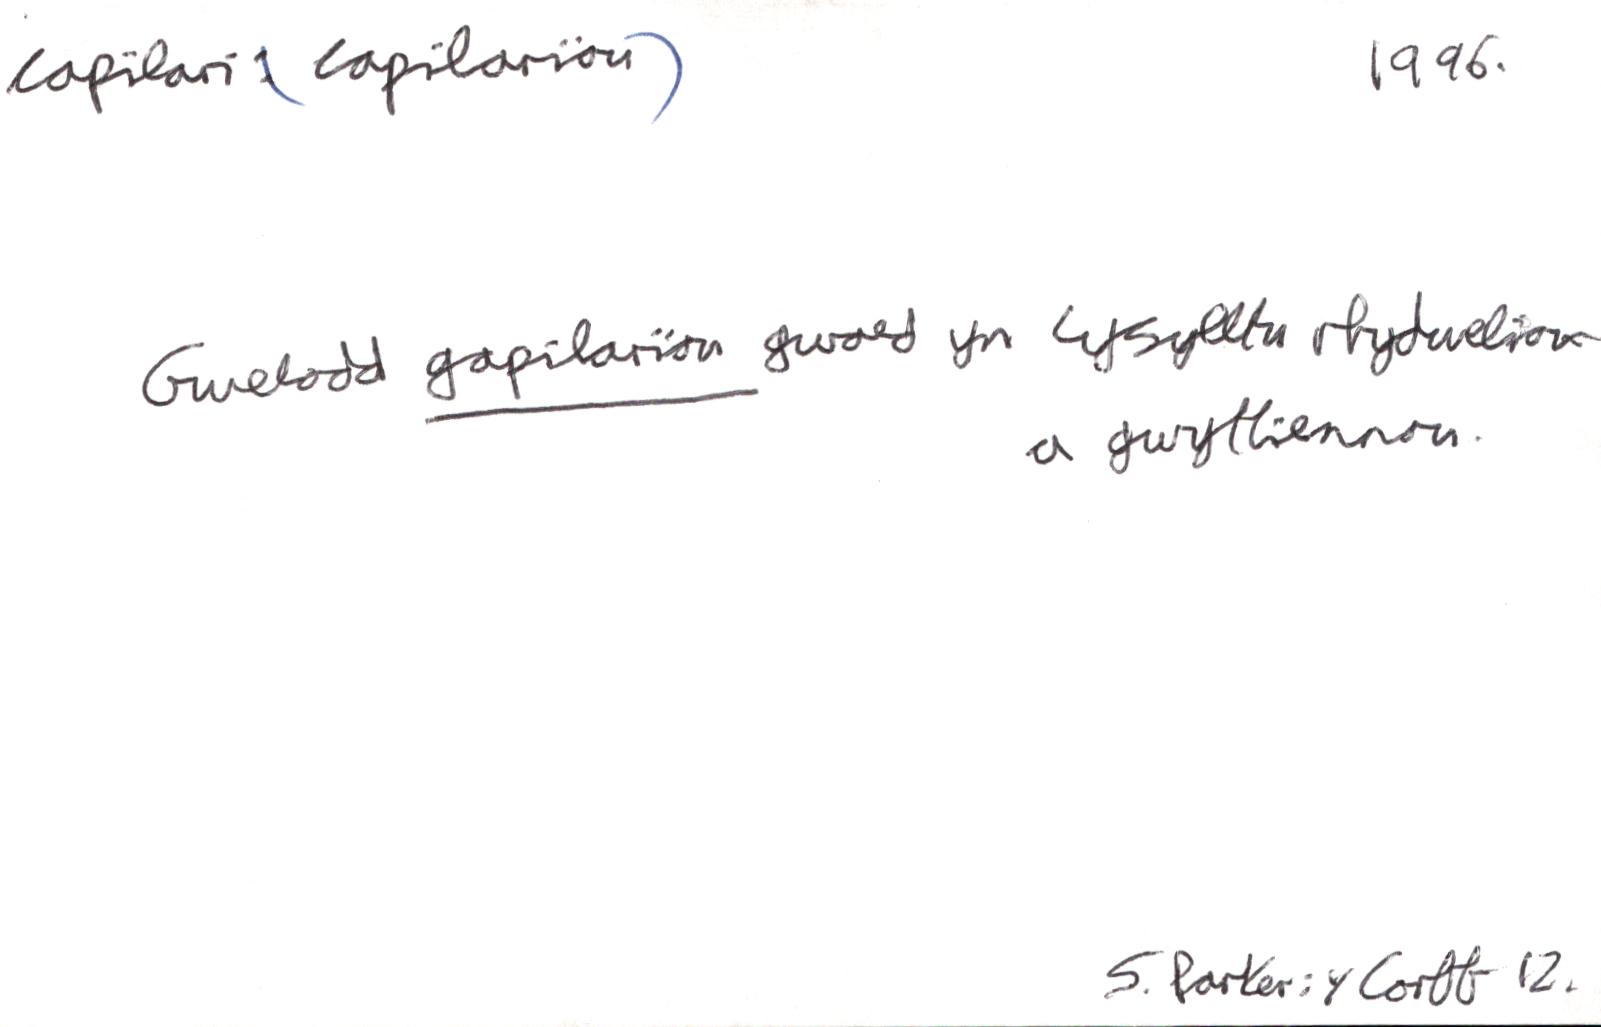 capilari: (capilarïau) 1996.
Gwelodd gapilarïau gwaed yn cysylltu rhydwelïau
a gwythiennau.
S. Parker: Y Corff 12.